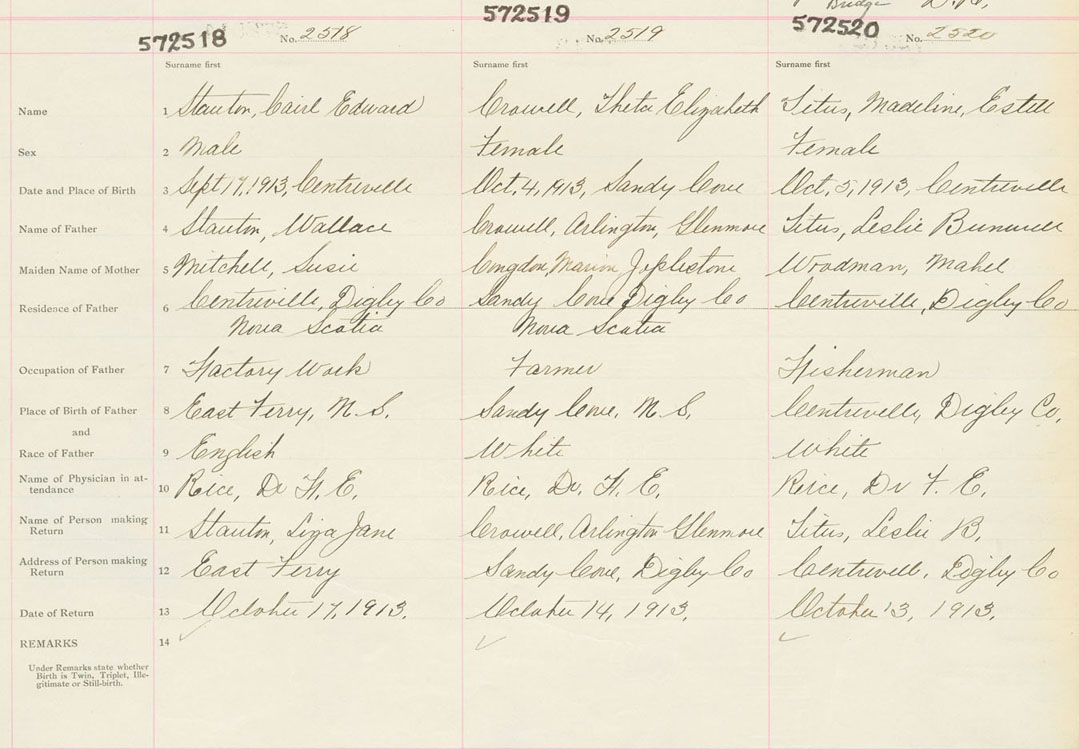 Bridge
572518 No. 2518
572519 No. 2519
572520 No. 2520
Surname first Surname first Surname first
Name 1 Stanton, Cairl Edward Crowell, Theta Elizabeth Titus, Madeline, Estell
Sex 2 Male Female Female
Date and Place of Birth 3 Sept 17, 1913, Centreville Oct, 4, 1913, Sandy Cove Oct, 5, 1913, Centreville
Name of Father 4 Stanton, Wallace Crowell, Arlington, Glenmore Titus, Leslie
Maiden Name of Mother 5 Mitchell, Susie Congdon, Marion Woodman, Mabel
Residence of Father 6 Centreville, Digby Co Sandy Cove Digby Co Centreville, Digby Co
Nova Scotia Nova Scotia
Occupation of Father 7 Factory Work Farmer Fisherman
Place of Birth of Father 8 East Ferry, N.S. Sandy Cove, N.S. Centreville, Digby Co.
and
Race of Father 9 English White White
Name of Physician in at-
tendance 10 Rice, Dr F. E. Rice, Dr. F. E. Rice, Dr F. E.
Name of Person making
Return 11 Stanton, Liza Jane Crowell, Arlington Glenmore Titus, Leslie B.
Address of Person making
Return 12 East Ferry Sandy Cove, Digby Co Centrevill, Digby Co
Date of Return 13 October 17, 1913. October 14, 1913. October 13, 1913.
REMARKS 14
Under Remarks state whether
Birth is Twin, Triplet, Ille-
gitimate or Still-birth.